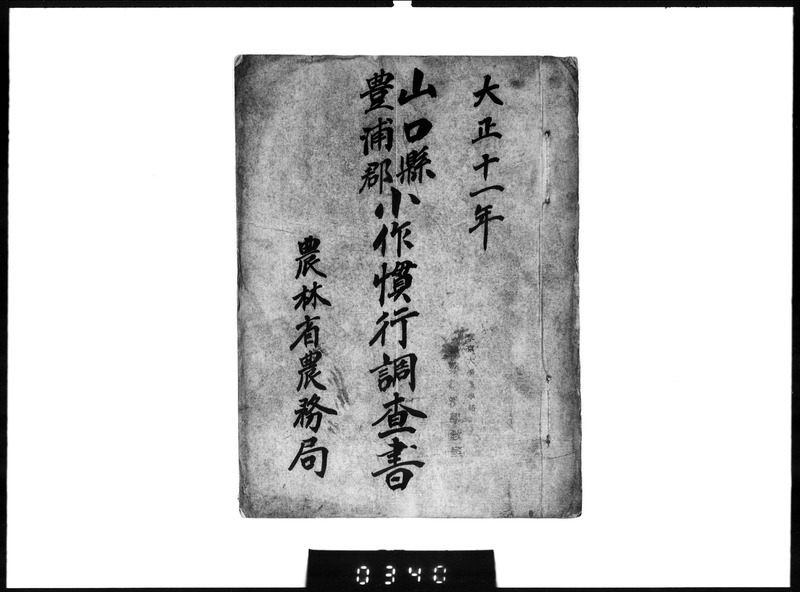 大正十一年
山口縣
豊浦郡
小作慣行調査書
農林省農務局
0340